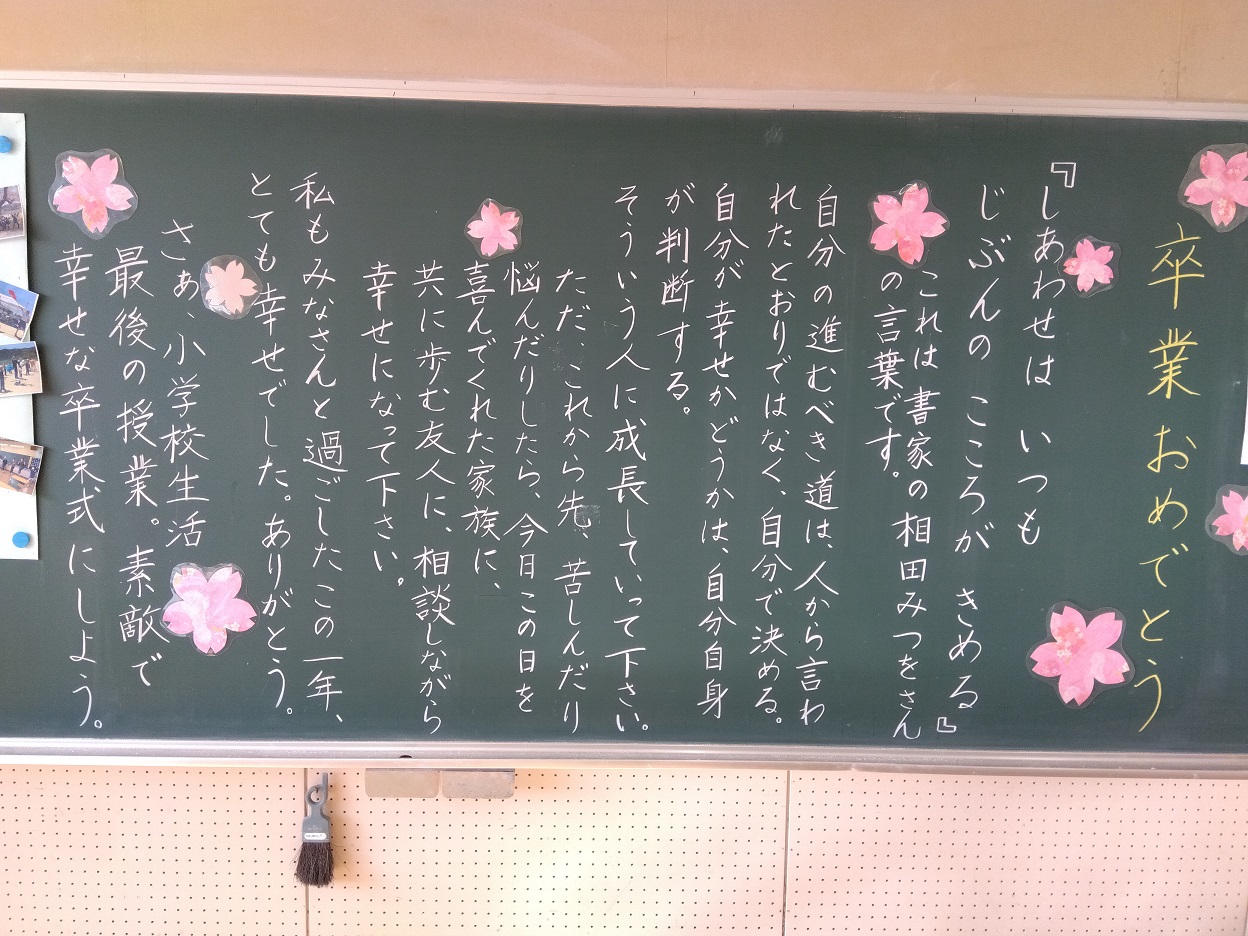 卒業おめでとう
『しあわせは いつも
じぶんの こころが きめる』
これは書家の相田みつをさん
の言葉です。
自分の進むべき道は、人から言わ
れたとおりではなく、自分で決める。
自分が幸せかどうかは、自分自身
が判断する。
そういう人に成長していって下さい。
ただ、これから先、苦しんだり
悩んだりしたら、今日この日を
喜んでくれた家族に、
共に歩む友人に、相談しながら
幸せになって下さい。
私もみなさんと過ごしたこの一年、
とても幸せでした。ありがとう。
さぁ、小学校生活
最後の授業。素敵で
幸せな卒業式にしよう。